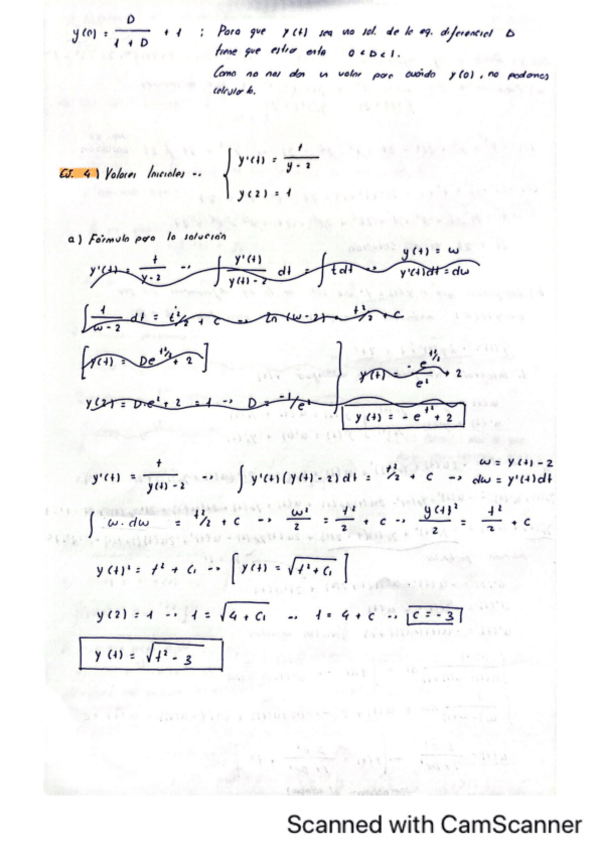 y(0) = D/(1+D) + 1 ; Para que y(t) sea una sol. de la eq. diferencial D
tiene que estar entre 0<D<1.
Como no nos dan un valor para cuando y(0), no podemos
calcular b.
EJ. 4) Valores Iniciales -- { y'(t) = t/(y-2)
y(2) = 1
a) Fórmula para la solución
y'(t) = t/(y-2) --> ∫ y'(t)/(y(t)-2) dt = ∫ t dt --> y(t) = w
y'(t)dt = dw
∫ 1/(w-2) dt = t²/2 + C --> ln(w-2) = t²/2 + C
[y(t) = De^(t²/2) + 2] y(t) = -e^(t²/2)/e² + 2
y(2) = D·e² + 2 = 1 --> D = -1/e²
y(t) = -e^(t²) + 2
y'(t) = t/(y(t)-2) --> ∫ y'(t)(y(t)-2) dt = t²/2 + C --> w = y(t)-2
dw = y'(t)dt
∫ w·dw = t²/2 + C --> w²/2 = t²/2 + C -- y(t)²/2 = t²/2 + C
y(t)² = t² + C₁ --> [y(t) = √(t²+C₁)]
y(2) = 1 --> 1 = √(4+C₁) -- 1 = 4 + C -- C = -3
y(t) = √(t² - 3)
Scanned with CamScanner